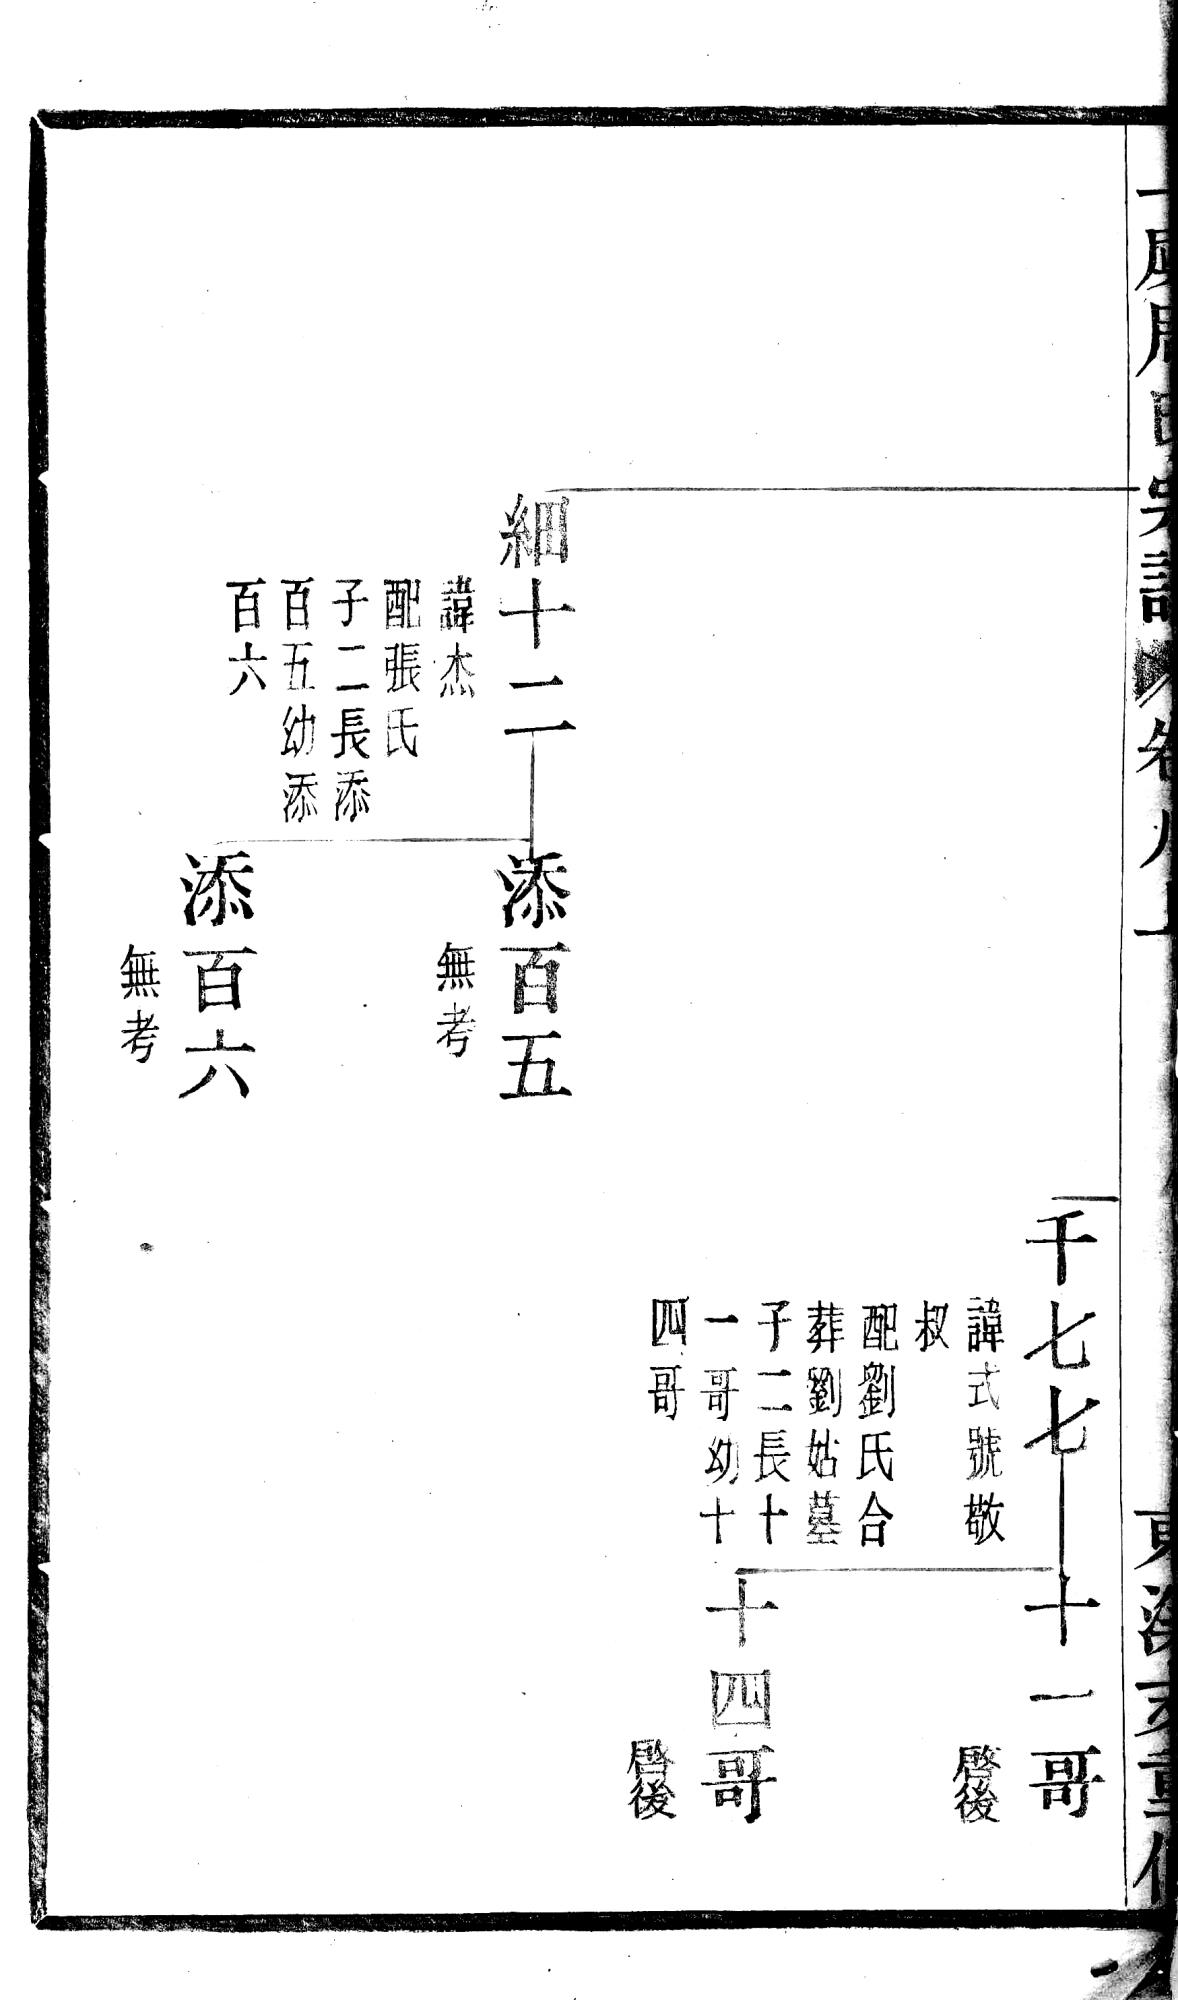 千七七
諱式號敬
叔
配劉氏合
葬劉姑墓
子二長十
一哥幼十
四哥
十一哥
啓後
十四哥
啓後
細十二
諱杰
配張氏
子二長添
百五幼添
百六
添百五
無考
添百六
無考